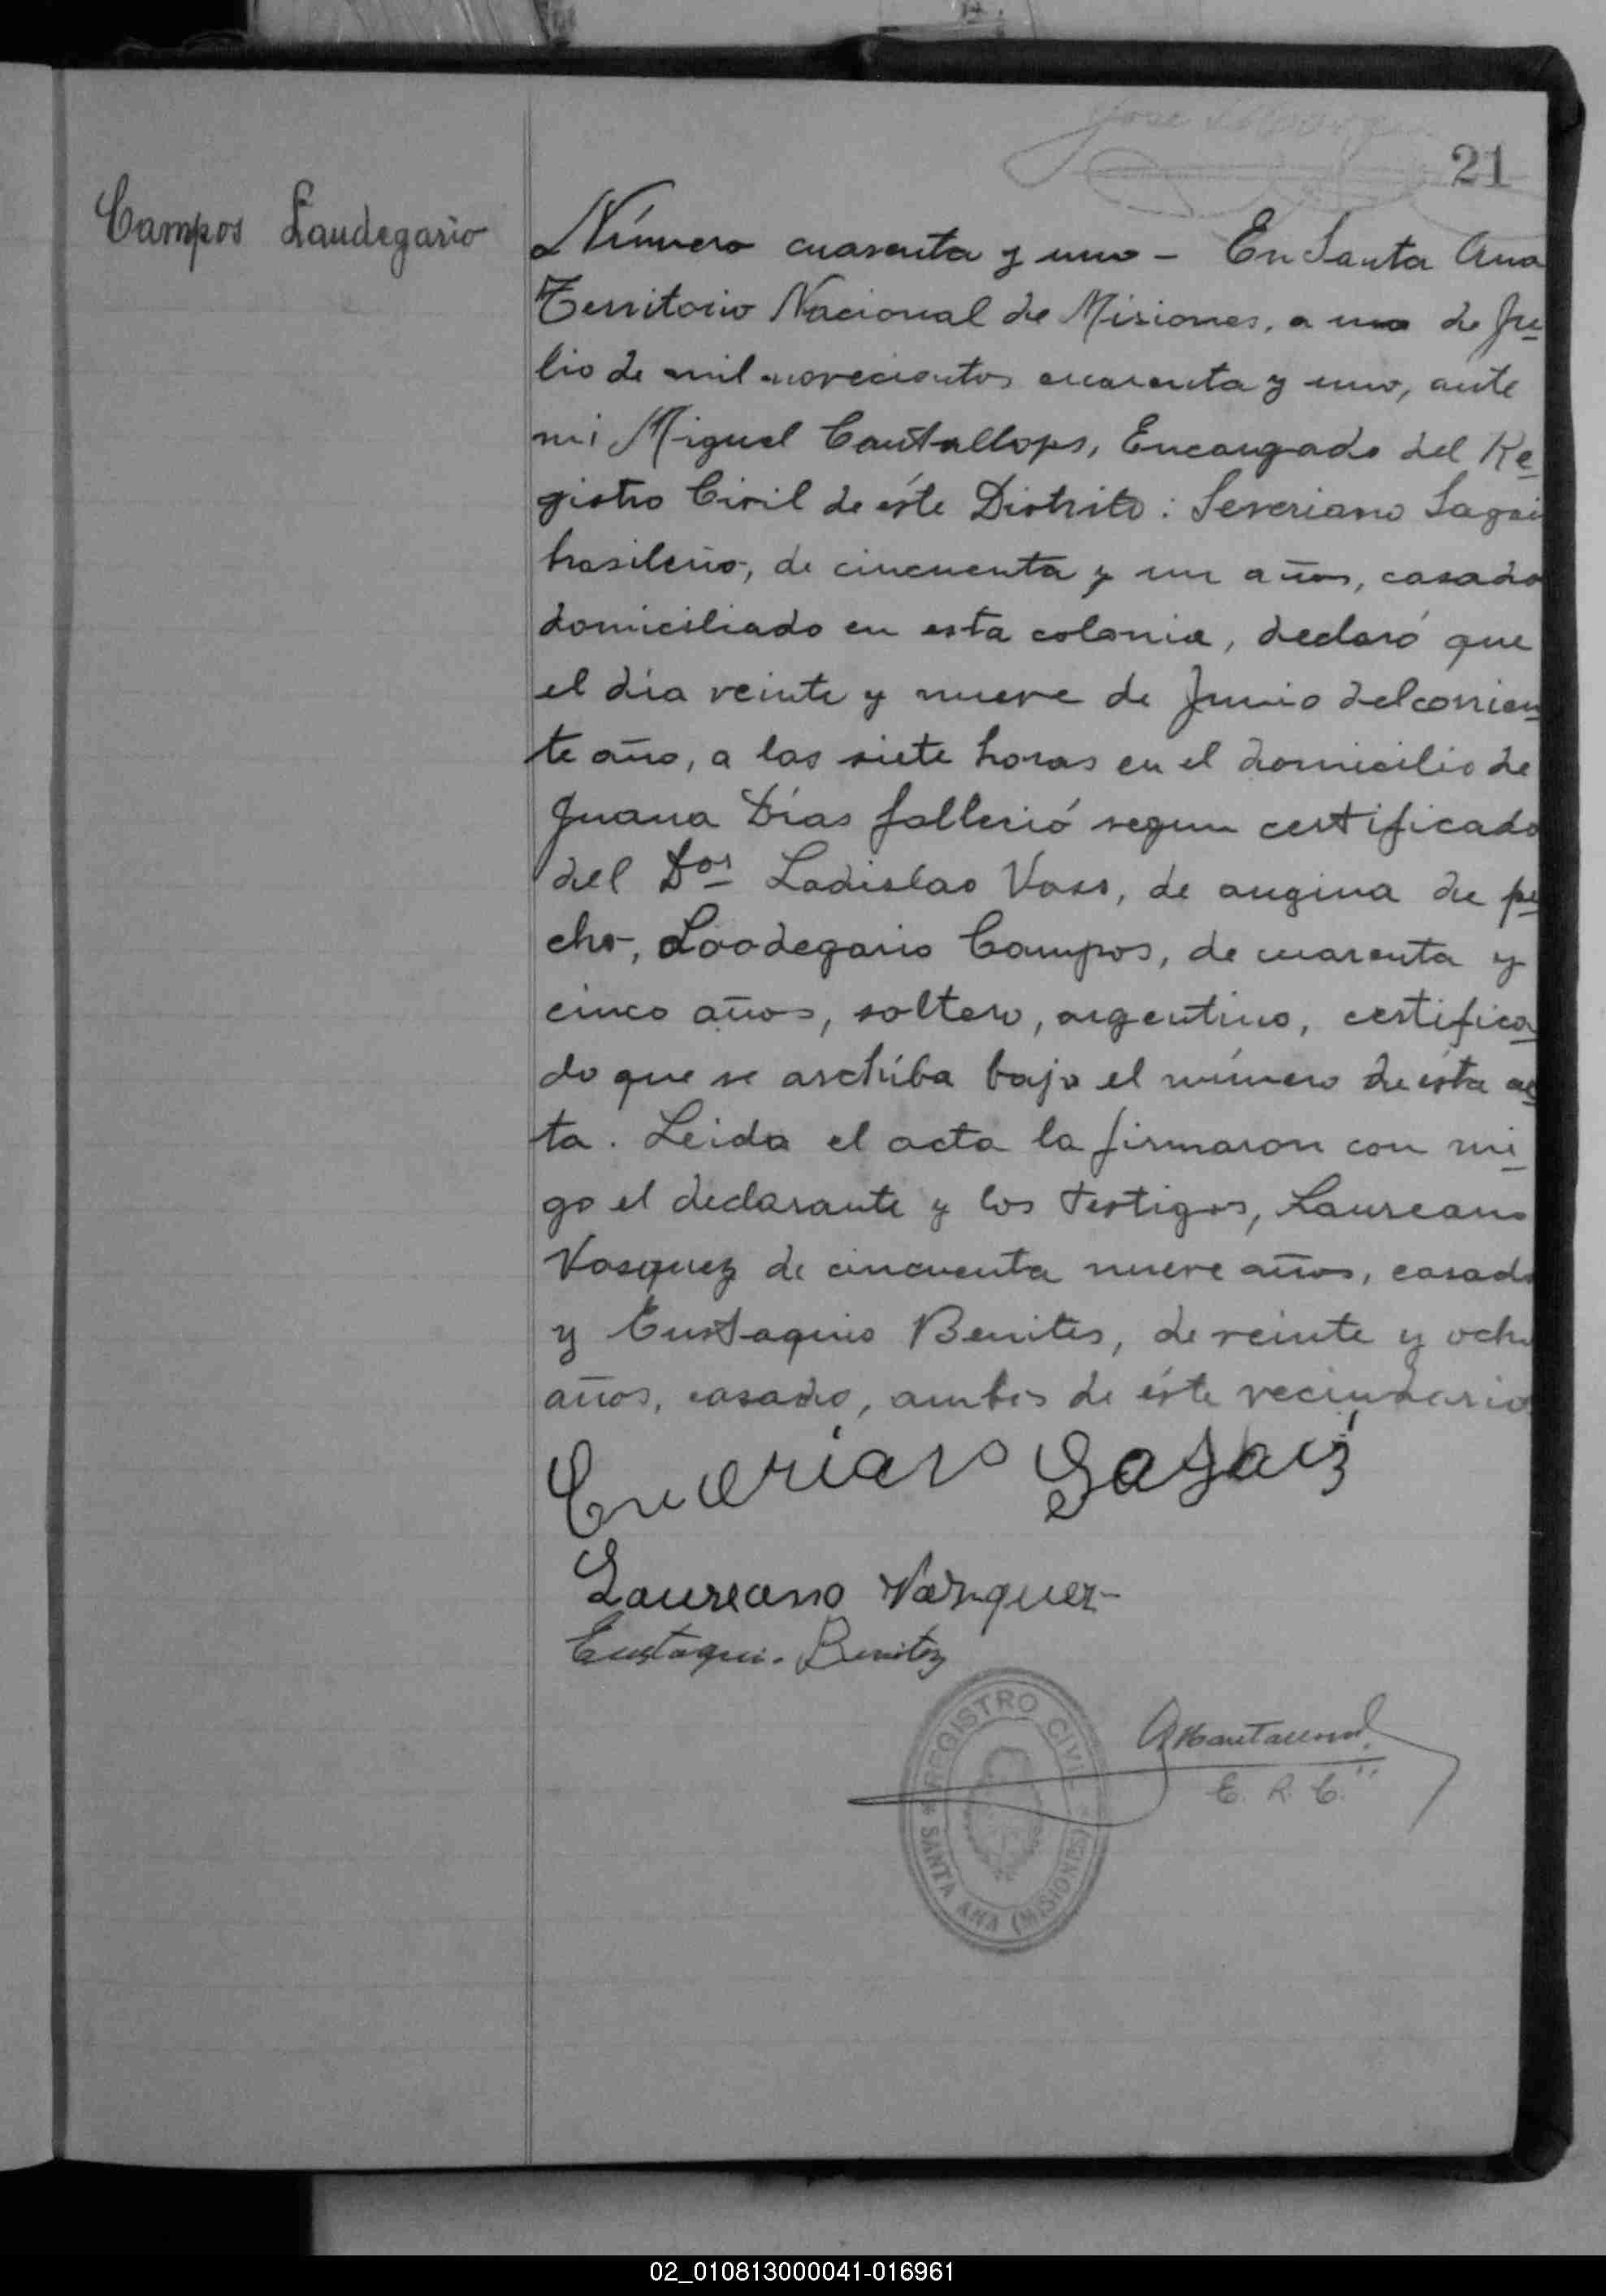 21
Campos Laudegario
Número cuarenta y uno - En Santa Ana
Territorio Nacional de Misiones, a uno de Ju
lio de mil novecientos cuarenta y uno, ante
mi Miguel Cantallops, Encargado del Re
gistro Civil de éste Distrito: Severiano Sagai
brasileño, de cincuenta y un años, casado
domiciliado en esta colonia, declaró que
el día veinte y nueve de Junio del corrien
te año, a las siete horas en el domicilio de
Juana Días falleció segun certificado
del Dor Ladislao Vass, de angina de pe
cho, Loodegario Campos, de cuarenta y
cinco años, soltero, argentino, certifica
do que se archíba bajo el número de ésta ac
ta. Leida el acta la firmaron con mi
go el declarante y los testigos, Laureano
Vasquez de cincuenta nueve años, casado
y Eustaquio Benites, de veinte y ocho
años, casado, ambos de éste vecindario
Laureano Vazquez
Eustaqui. Benitez
REGISTRO CIVIL
SANTA ANA (MISIONES)
E. R. C.
02_010813000041-016961